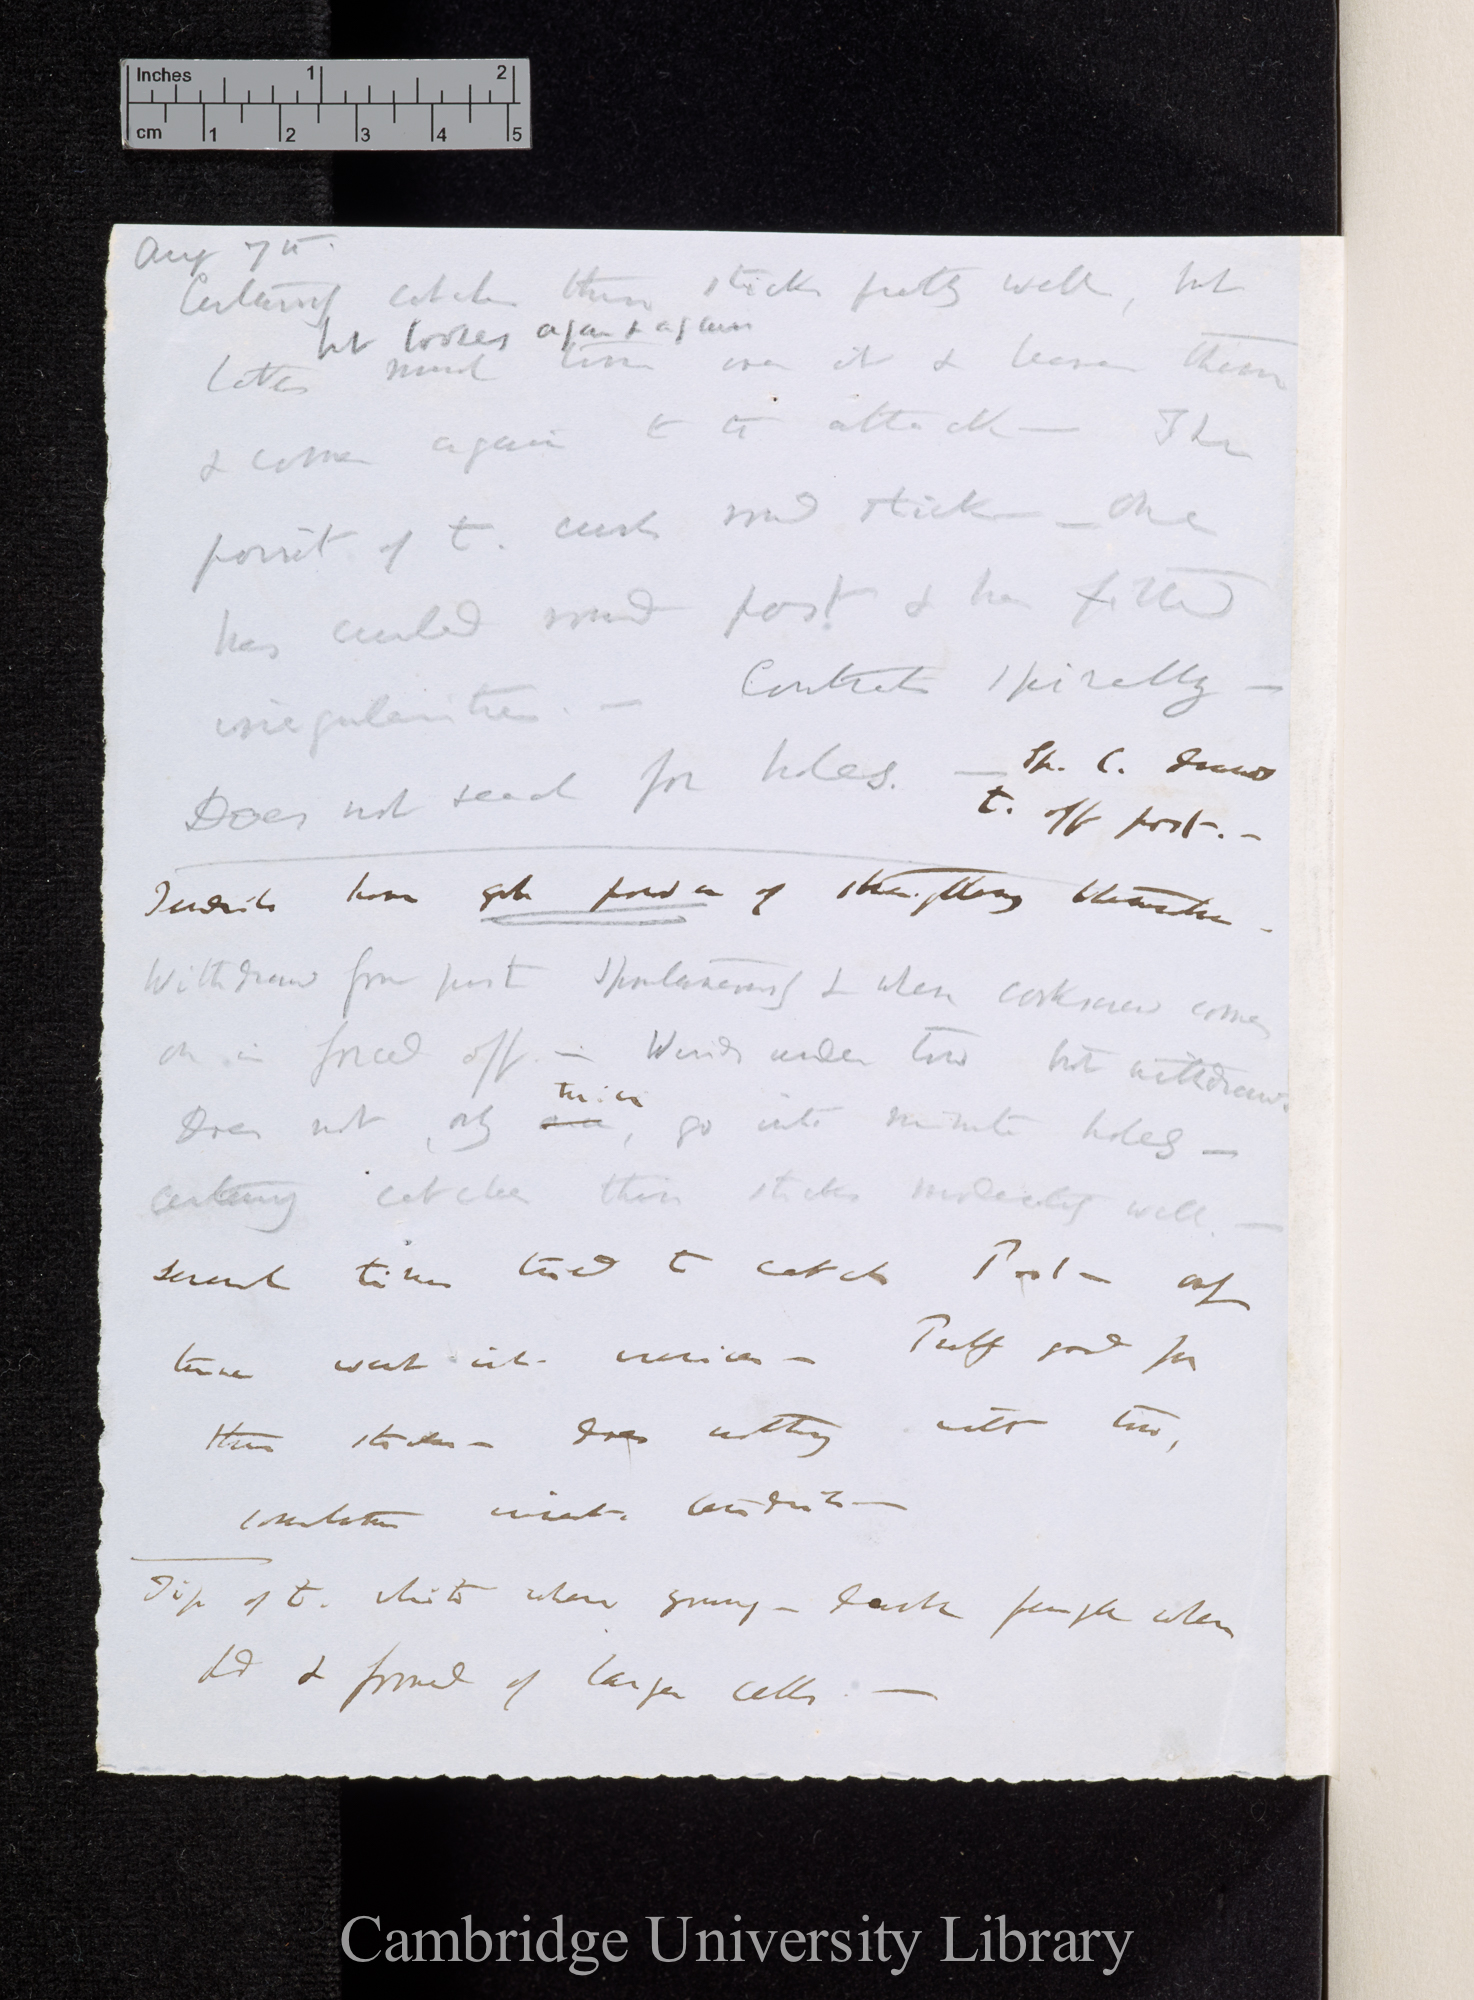 Inches 1 2
cm 1 2 3 4 5
Aug 7th.
Certainly catches thin sticks pretty well, but
but looses again & again
takes much time over it & leaves them
& comes again to the attack — The
point of t. curls round stick — One
has curled round post & has fitted
irregularities. — Contracts spirally —
Does not seach for holes. — Sp. C. draws
t. off post. —
Tendrils have got power of straightening themselves —
Withdraws from post spontaneously & when corkscrew comes
on is forced off. — Winds under tow but withdraws
Does not, only twice, go into minute holes —
certainly catches thin sticks moderately well. —
several times tried to catch Post — only
twice went into crevices — Pretty good for
thin sticks — does nothing with tow,
Tip of t. white when young — dark purple when
old & formed of larger cells. —
Cambridge University Library